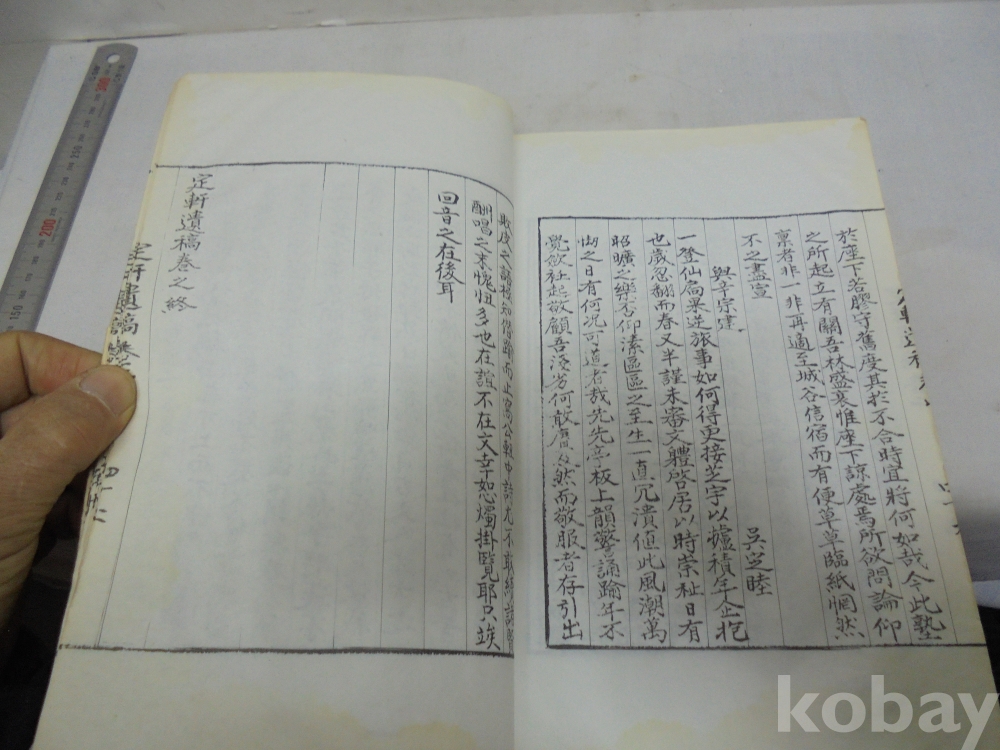 於座下若膠守舊度其於不合時宜將何如哉今此塾
之所起立有關吾林盛衰惟座下諒處焉所欲問論仰
稟者非一非再適至城谷信宿而有便草草臨紙惘然
不之盡宣
與辛宗建 吳定睦
一登仙扃果逆旅事如何得更接芝宇以攄積年企抱
也歲忽翻而春又半謹未審文軆啓居以時崇祉日有
昭曠之樂否仰溸區區之至生一直冗潰値此風潮萬
之日有何况可道者哉先先亭板上韻警誦踰年不
覺欲社起敬顧吾淺劣何敢賡及然而敬服者存引出
酬唱之末愧恧多也在誼不在文幸恕燭掛覽耶只竢
回音之在後耳
定軒遺稿卷之終
定軒遺稿卷
kobay